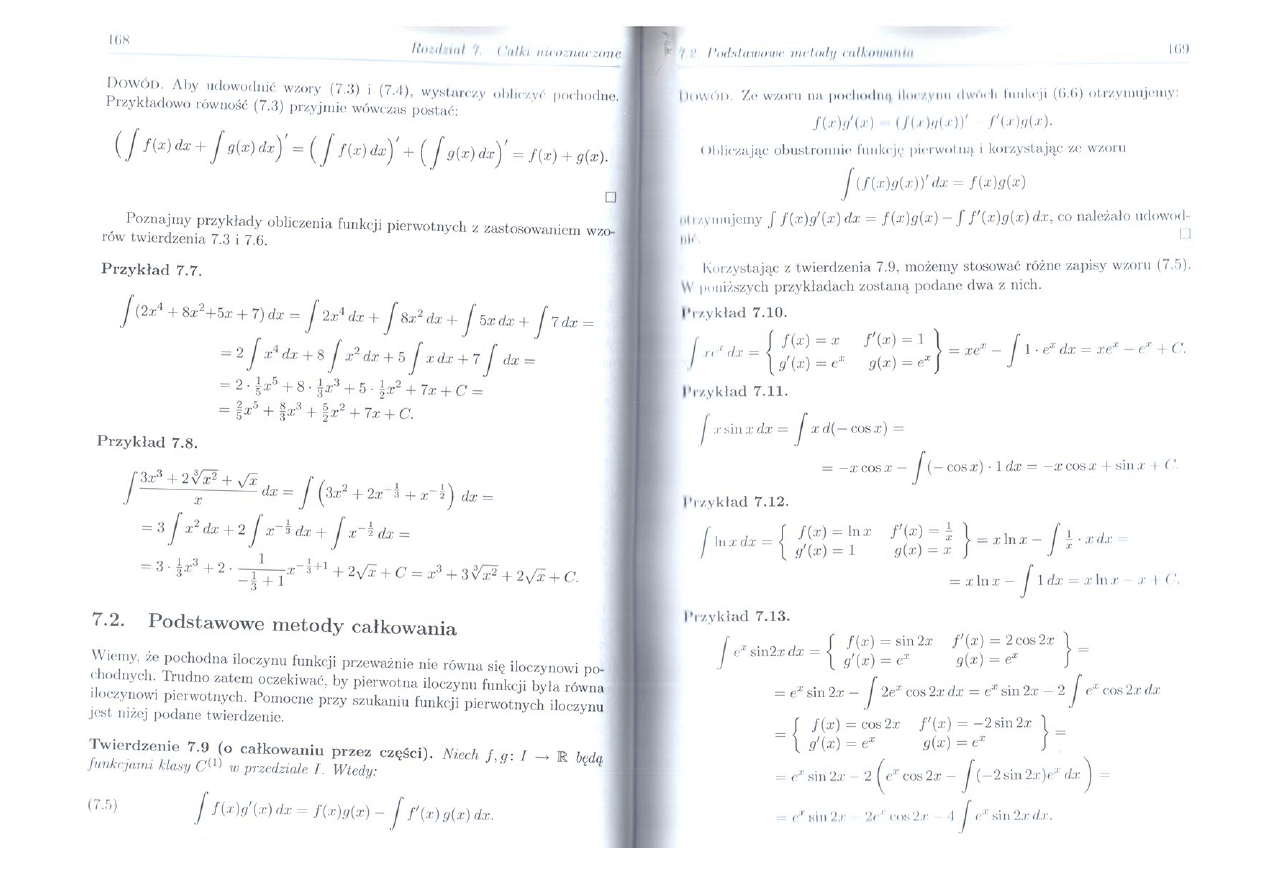 168
Rozdział 7. Całki nieoznaczone
DOWÓD. Aby udowodnić wzory (7.3) i (7.4), wystarczy obliczyć pochodne.
Przykładowo równość (7.3) przyjmie wówczas postać:
(∫ f(x) dx + ∫ g(x) dx)' = (∫ f(x) dx)' + (∫ g(x) dx)' = f(x) + g(x).
□
Poznajmy przykłady obliczenia funkcji pierwotnych z zastosowaniem wzo-
rów twierdzenia 7.3 i 7.6.
Przykład 7.7.
∫ (2x⁴ + 8x²+5x + 7) dx = ∫ 2x⁴ dx + ∫ 8x² dx + ∫ 5x dx + ∫ 7 dx =
= 2 ∫ x⁴ dx + 8 ∫ x² dx + 5 ∫ x dx + 7 ∫ dx =
= 2 · 1/5 x⁵ + 8 · 1/3 x³ + 5 · 1/2 x² + 7x + C =
= 2/5 x⁵ + 8/3 x³ + 5/2 x² + 7x + C.
Przykład 7.8.
∫ (3x³ + 2∛x² + √x)/x dx = ∫ (3x² + 2x^(-1/3) + x^(-1/2)) dx =
= 3 ∫ x² dx + 2 ∫ x^(-1/3) dx + ∫ x^(-1/2) dx =
= 3 · 1/3 x³ + 2 · 1/(-1/3 + 1) x^(-1/3+1) + 2√x + C = x³ + 3∛x² + 2√x + C.
7.2. Podstawowe metody całkowania
Wiemy, że pochodna iloczynu funkcji przeważnie nie równa się iloczynowi po-
chodnych. Trudno zatem oczekiwać, by pierwotna iloczynu funkcji była równa
iloczynowi pierwotnych. Pomocne przy szukaniu funkcji pierwotnych iloczynu
jest niżej podane twierdzenie.
Twierdzenie 7.9 (o całkowaniu przez części). Niech f, g: I → ℝ będą
funkcjami klasy C⁽¹⁾ w przedziale I. Wtedy:
(7.5) ∫ f(x)g'(x) dx = f(x)g(x) − ∫ f'(x) g(x) dx.
7.2. Podstawowe metody całkowania
169
DOWÓD. Ze wzoru na pochodną iloczynu dwóch funkcji (6.6) otrzymujemy:
f(x)g'(x) = (f(x)g(x))' − f'(x)g(x).
Obliczając obustronnie funkcję pierwotną i korzystając ze wzoru
∫ (f(x)g(x))' dx = f(x)g(x)
otrzymujemy ∫ f(x)g'(x) dx = f(x)g(x) − ∫ f'(x)g(x) dx, co należało udowod-
nić. □
Korzystając z twierdzenia 7.9, możemy stosować różne zapisy wzoru (7.5).
W poniższych przykładach zostaną podane dwa z nich.
Przykład 7.10.
∫ xeˣ dx = { f(x) = x f'(x) = 1
g'(x) = eˣ g(x) = eˣ } = xeˣ − ∫ 1 · eˣ dx = xeˣ − eˣ + C.
Przykład 7.11.
∫ x sin x dx = ∫ x d(− cos x) =
= −x cos x − ∫ (− cos x) · 1 dx = −x cos x + sin x + C.
Przykład 7.12.
∫ ln x dx = { f(x) = ln x f'(x) = 1/x
g'(x) = 1 g(x) = x } = x ln x − ∫ 1/x · x dx =
= x ln x − ∫ 1 dx = x ln x − x + C.
Przykład 7.13.
∫ eˣ sin2x dx = { f(x) = sin 2x f'(x) = 2 cos 2x
g'(x) = eˣ g(x) = eˣ } =
= eˣ sin 2x − ∫ 2eˣ cos 2x dx = eˣ sin 2x − 2 ∫ eˣ cos 2x dx
= { f(x) = cos 2x f'(x) = −2 sin 2x
g'(x) = eˣ g(x) = eˣ } =
= eˣ sin 2x − 2 (eˣ cos 2x − ∫ (−2 sin 2x)eˣ dx) =
= eˣ sin 2x − 2eˣ cos 2x − 4 ∫ eˣ sin 2x dx.